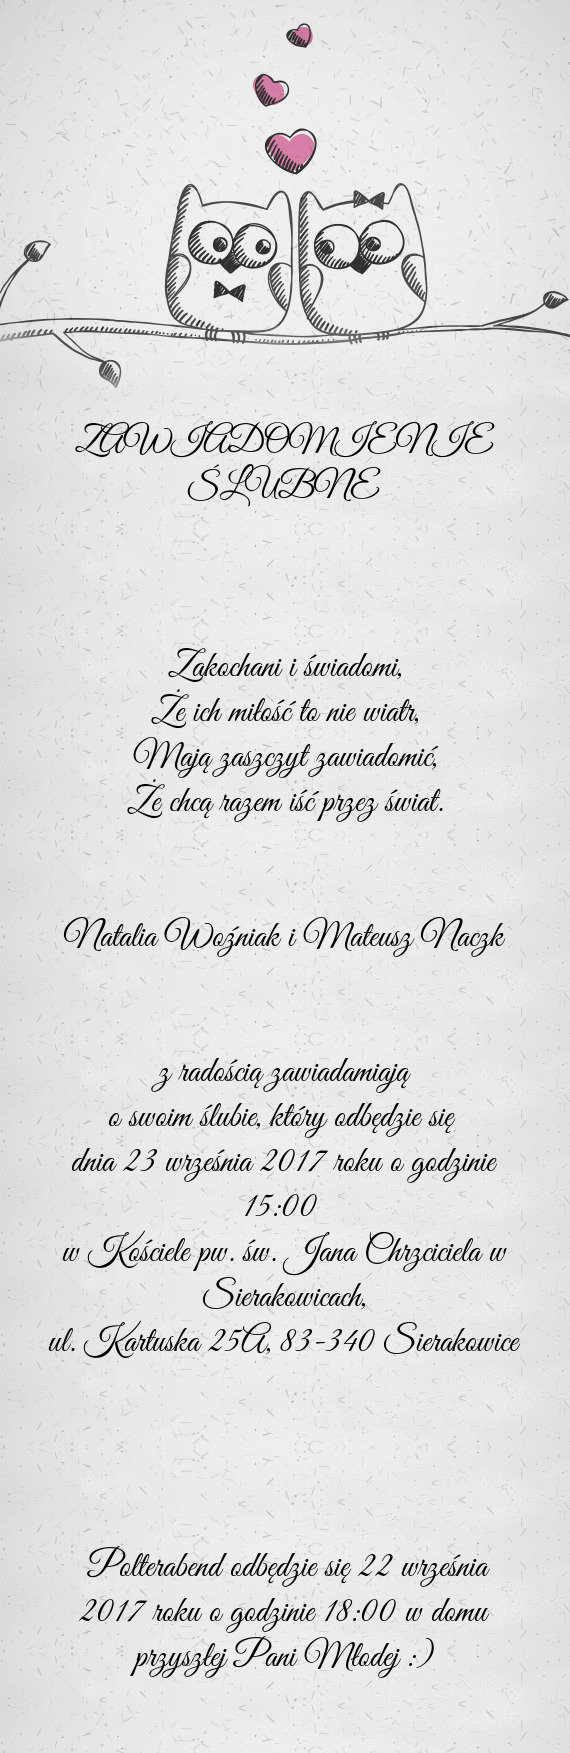 ZAWIADOMIENIE
ŚLUBNE
Zakochani i świadomi,
Że ich miłość to nie wiatr,
Mają zaszczyt zawiadomić,
Że chcą razem iść przez świat.
Natalia Woźniak i Mateusz Naczk
z radością zawiadamiają
o swoim ślubie, który odbędzie się
dnia 23 września 2017 roku o godzinie
15:00
w Kościele pw. św. Jana Chrzciciela w
Sierakowicach,
ul. Kartuska 25A, 83-340 Sierakowice
Polterabend odbędzie się 22 września
2017 roku o godzinie 18:00 w domu
przyszłej Pani Młodej :)